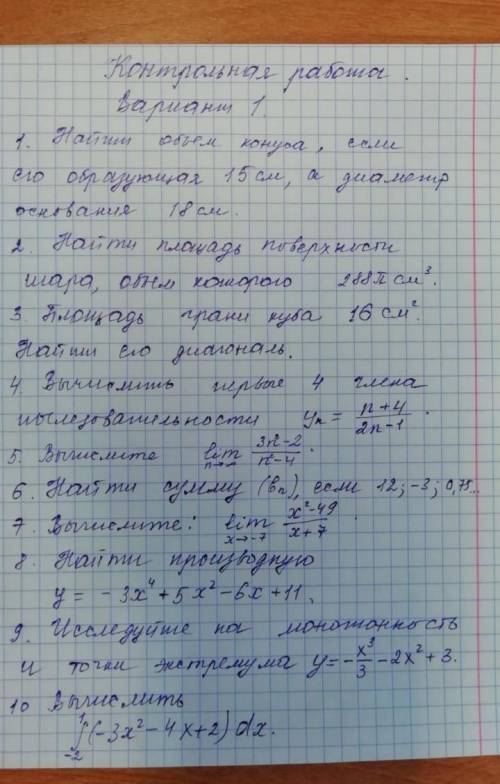 Контрольная работа.
Вариант 1.
1. Найти объем конуса, если
его образующая 15 см, а диаметр
основания 18 см.
2. Найти площадь поверхности
шара, объем которого 288π см³.
3. Площадь грани куба 16 см².
Найти его диагональ.
4 Вычислить первые 4 члена
последовательности yₙ = (n+4)/(2n-1).
5. Вычислите lim n→∞ (3n²-2)/(n²-4).
6. Найти сумму (bₙ), если 12; -3; 0,75...
7. Вычислите: lim x→-7 (x²-49)/(x+7).
8. Найти производную
y = -3x⁴+5x²-6x+11.
9. Исследуйте на монотонность
и точки экстремума y=-x³/3-2x²+3.
10 Вычислить
∫₋₂¹(-3x²-4x+2)dx.